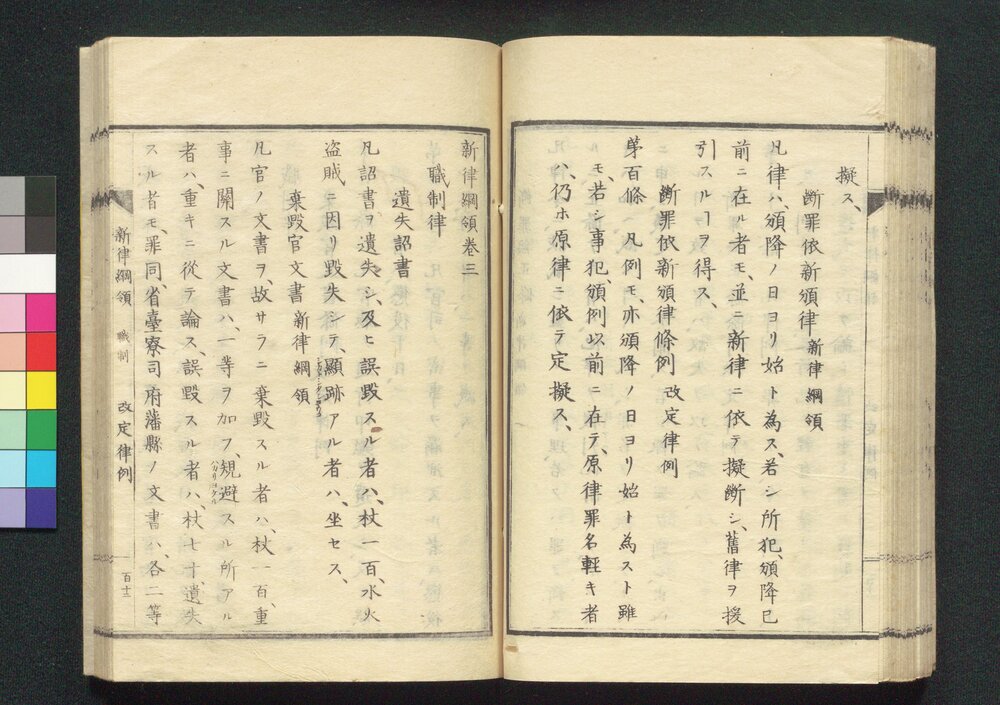 擬ス、
断罪依新頒律 新律綱領
凡律ハ、頒降ノ日ヨリ始ト為ス、若シ所犯、頒降已
前ニ在ル者モ、並ニ新律ニ依テ擬断シ、舊律ヲ援
引スルヿヲ得ス、
断罪依新頒律條例 改定律例
第百條 凡例モ、亦頒降ノ日ヨリ始ト為スト雖
モ、若シ事犯、頒例以前ニ在テ、原律罪名軽キ者
ハ、仍ホ原律ニ依テ定擬ス、
新律綱領巻三
職制律
遺失詔書
凡詔書ヲ遺失シ、及ヒ誤毀スル者ハ、杖一百、水火
盗賊ニ因リ毀失シテ、顯跡アル者ハ、坐セス、
棄毀官文書 新律綱領
凡官ノ文書ヲ、故サラニ棄毀スル者ハ、杖一百、重
事ニ關スル文書ハ、一等ヲ加フ、規避スル所アル
ハカリヨクル
者ハ、重キニ從テ論ス、誤毀スル者ハ、杖七十、遺失
スル者モ、罪同、省臺寮司府藩縣ノ文書ハ、各二等
新律綱領 職制 改定律例 百十三